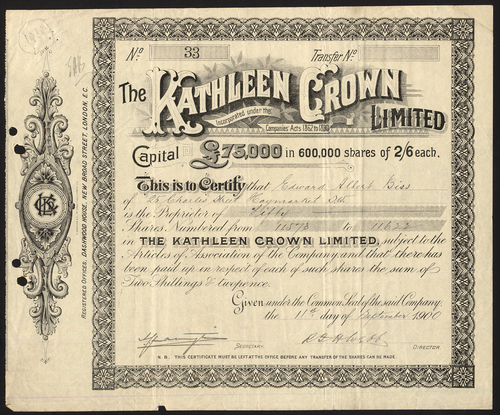 Nº 33 Transfer Nº
The KATHLEEN CROWN LIMITED
Incorporated under the Companies Acts 1862 to 1890
Capital £75,000 in 600,000 shares of 2/6 each.
This is to Certify that Edward Albert Biss
of 25 Charles Street Haymarket
is the Proprietor of Fifty
Shares Numbered from 11573 to 11622
in THE KATHLEEN CROWN LIMITED, subject to the
Articles of Association of the Company and that there has
been paid up in respect of each of such shares the sum of
Two Shillings & twopence.
Given under the Common Seal of the said Company
the 11th day of September 1900
SECRETARY.
DIRECTOR
N. B. THIS CERTIFICATE MUST BE LEFT AT THE OFFICE BEFORE ANY TRANSFER OF THE SHARES CAN BE MADE.
REGISTERED OFFICE; DASHWOOD HOUSE, NEW BROAD STREET, LONDON, E.C.